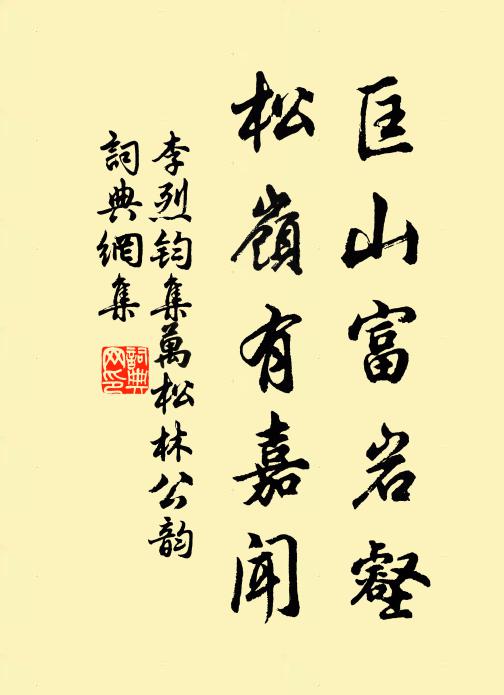 匡山富岩壑
松嶺有嘉聞
李烈钧集萬松林公韵
詞典網集
詞典网印